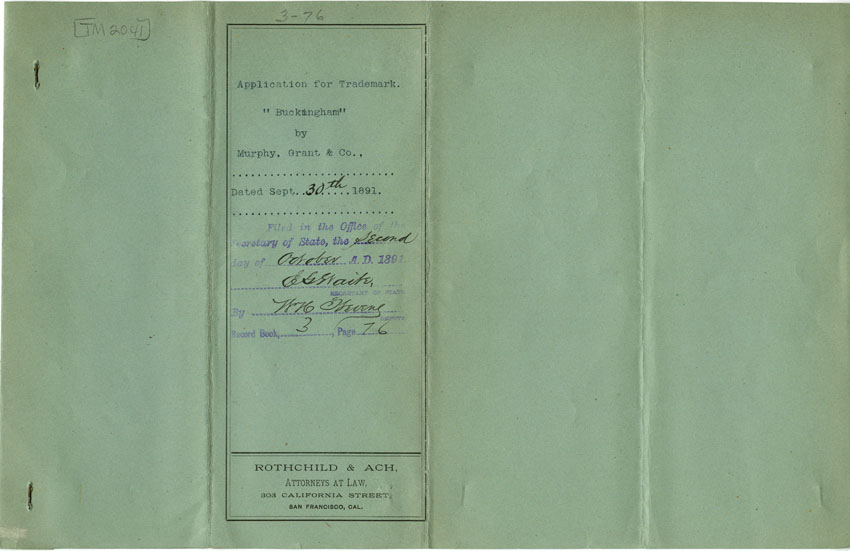 [TM 2041]
3-76
Application for Trademark.
" Buckingham"
by
Murphy, Grant & Co.,
Dated Sept. 30th 1891.
Filed in the Office of the
Secretary of State, the Second
day of October A.D. 1891
E G Waite,
SECRETARY OF STATE
By W H
DEPUTY
Record Book, 3, Page 76
ROTHCHILD & ACH,
ATTORNEYS AT LAW,
303 CALIFORNIA STREET,
SAN FRANCISCO, CAL.